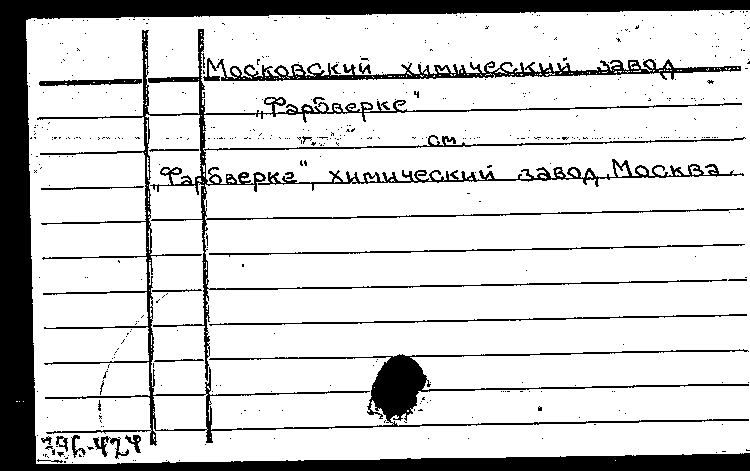 Московский химический завод
„Фарбверке"
см.
„Фарбверке", химический завод, Москва.
396-424